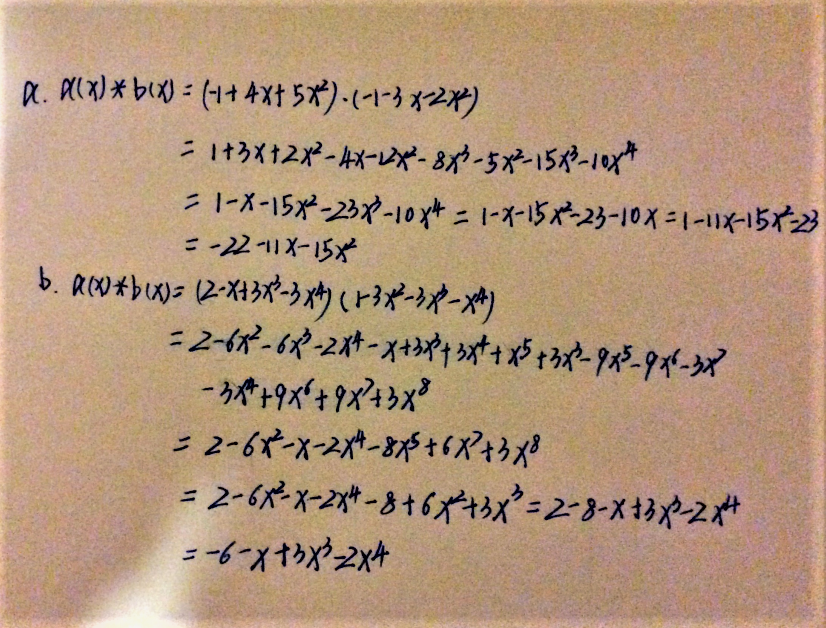 a. a(x)*b(x) = (-1+4x+5x²)·(-1-3x-2x²)
= 1+3x+2x²-4x-12x²-8x³-5x²-15x³-10x⁴
= 1-x-15x²-23x³-10x⁴ = 1-x-15x²-23-10x = 1-11x-15x²-23
= -22-11x-15x²
b. a(x)*b(x) = (2-x+3x³-3x⁴)(1-3x²-3x³-x⁴)
= 2-6x²-6x³-2x⁴-x+3x³+3x⁴+x⁵+3x³-9x⁵-9x⁶-3x⁷
-3x⁴+9x⁶+9x⁷+3x⁸
= 2-6x²-x-2x⁴-8x⁵+6x⁷+3x⁸
= 2-6x²-x-2x⁴-8+6x²+3x³ = 2-8-x+3x³-2x⁴
= -6-x+3x³-2x⁴